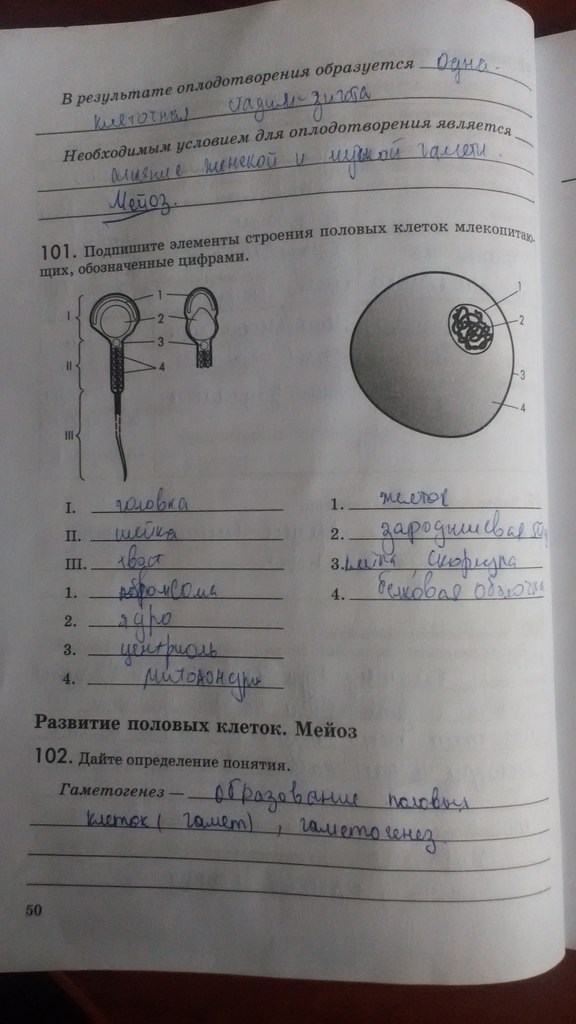 В результате оплодотворения образуется одна
клеточная стадия-зигота
Необходимым условием для оплодотворения является
слияние женской и мужской гаметы.
Мейоз.
101. Подпишите элементы строения половых клеток млекопитаю-
щих, обозначенные цифрами.
I 1 2 3 II 4 III
1 2 3 4
I. головка
II. шейка
III. хвост
1.
2. ядро
3. центриоль
4. митохондри
1. желток
2. зародышевая
3. клетка, скорлупа
4. белковая оболочка
Развитие половых клеток. Мейоз
102. Дайте определение понятия.
Гаметогенез — образование половых
клеток (гамет), гаметогенез.
50